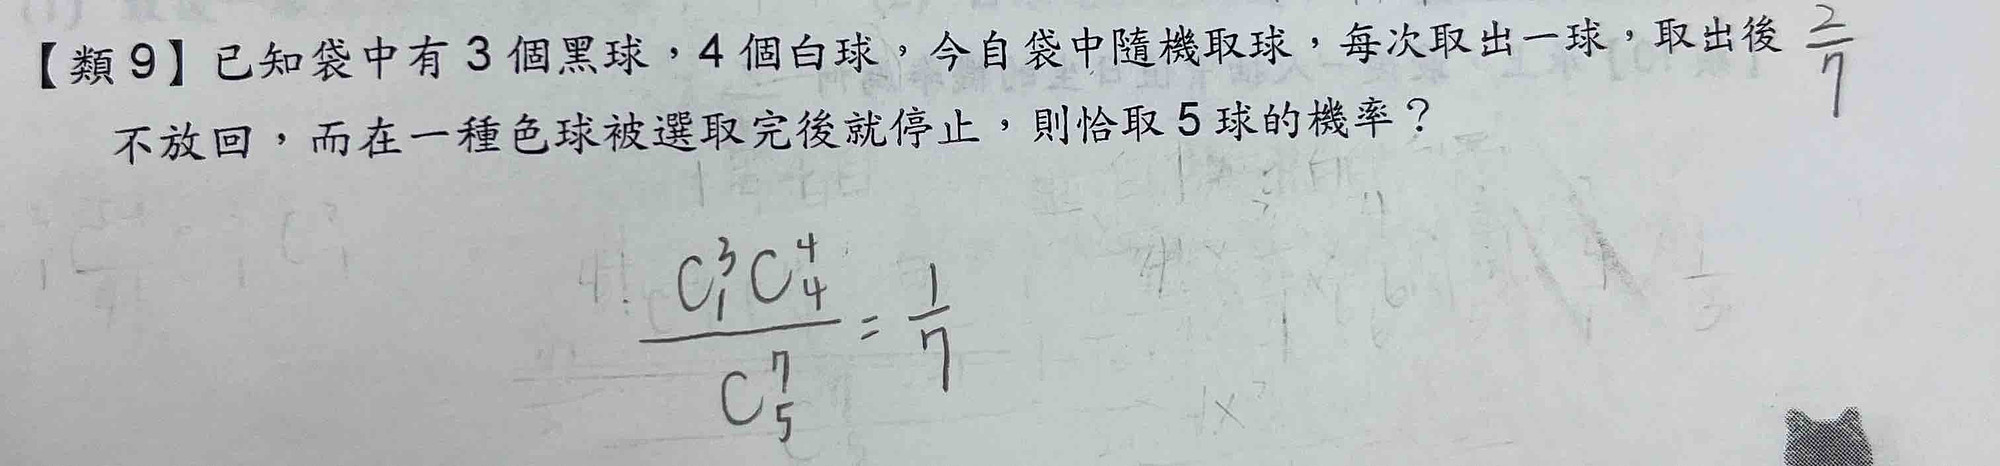 【類9】已知袋中有 3 個黑球,4 個白球,今自袋中隨機取球,每次取出一球,取出後 2/7
不放回,而在一種色球被選取完後就停止,則恰取 5 球的機率?
C^3_1 C^4_4 / C^7_5 = 1/7